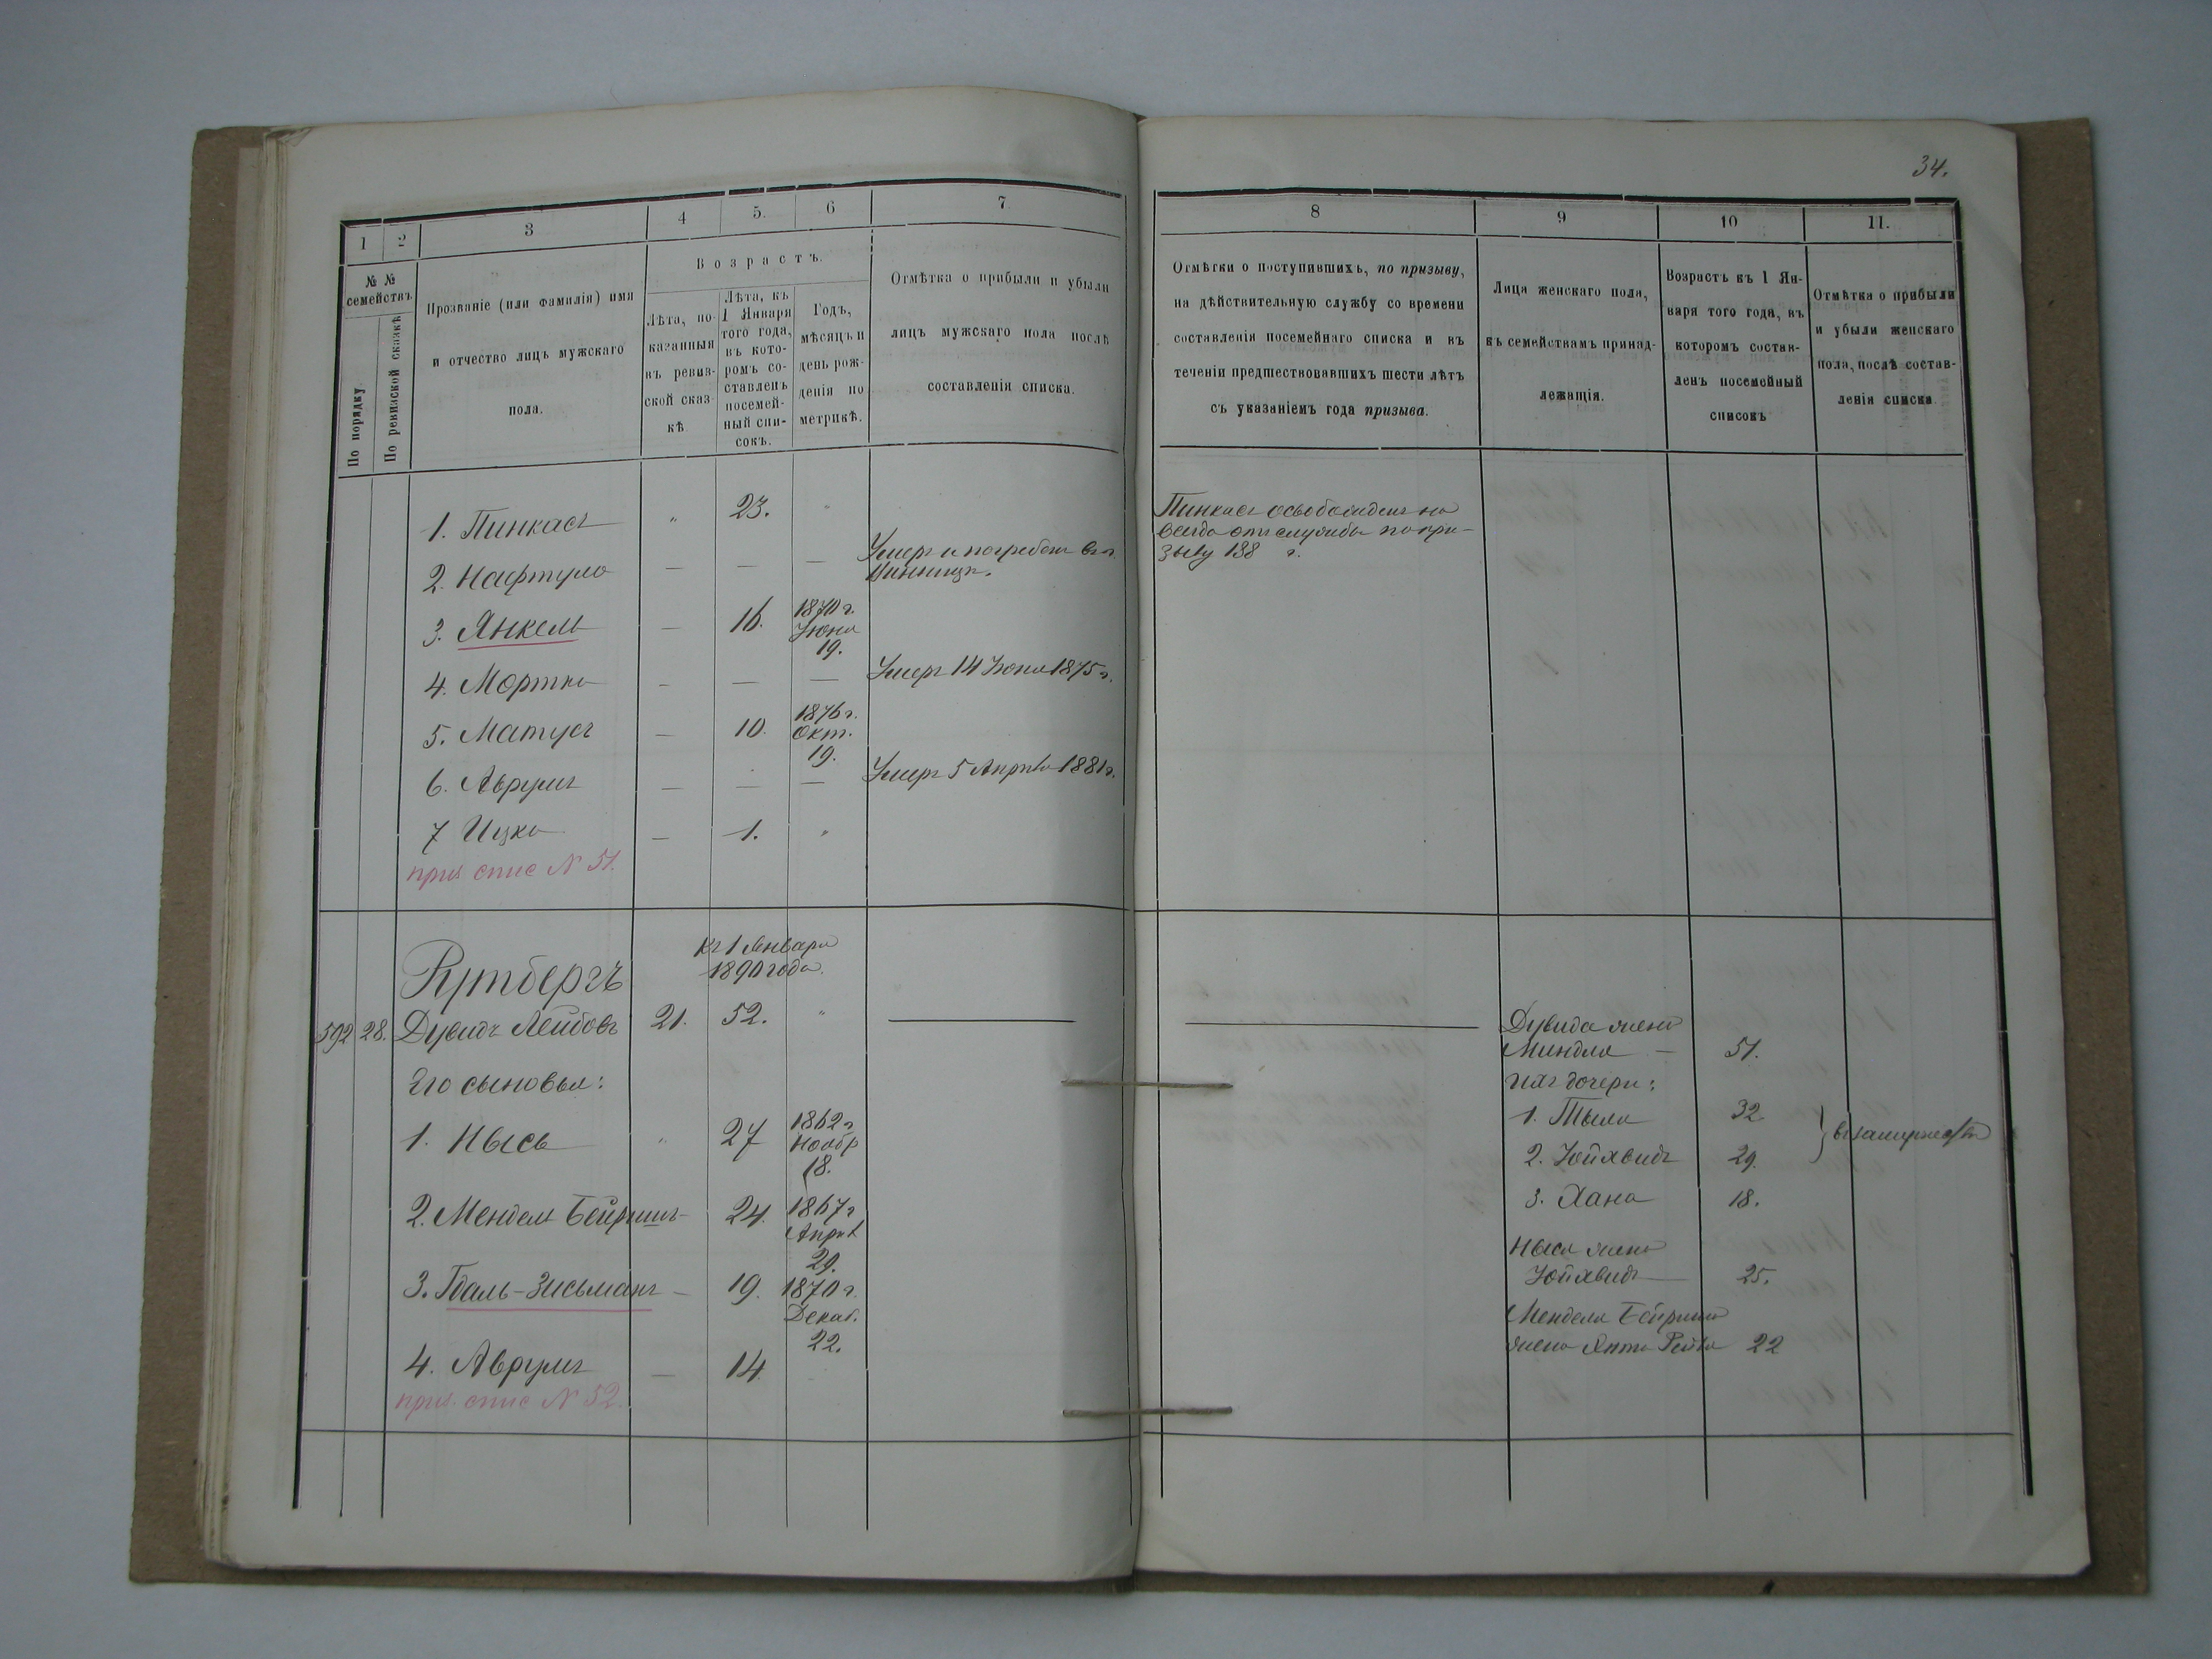 34.
1
2
3
4
5.
6
7
8
9
10
11.
№ №
семействъ
По порядку
По ревизской сказкѣ
Прозваніе (или фамилія) имя
и отчество лицъ мужскаго
пола.
Возрастъ.
Лѣта, по-
казанныя
въ ревиз-
ской сказ-
кѣ
Лѣта, къ
1 Января
того года,
въ кото-
ромъ со-
ставленъ
посемей-
ный спи-
сокъ.
Годъ,
мѣсяцъ и
день рож-
денія по
метрикѣ.
Отмѣтка о прибыли и убыли
лицъ мужскаго пола послѣ
составленія списка.
Отмѣтки о поступившихъ, по призыву,
на дѣйствительную службу со времени
составленія посемейнаго списка и въ
теченіи предшествовавшихъ шести лѣтъ
съ указаніемъ года призыва.
Лица женскаго пола,
къ семействамъ принад-
лежащія.
Возрастъ къ 1 Ян-
варя того года, въ
которомъ состав-
ленъ посемейный
списокъ
Отмѣтка о прибыли
и убыли женскаго
пола, послѣ состав-
ленія списка
1. Пинкасъ „ 23. „
Пинкасъ освобожденъ на
всегда отъ службы по при-
зыву 188 г.
2. Нафтула — — —
Умеръ и погребенъ въ г.
Винницѣ.
3. Янкель — 16. 1870 г.
Іюня
19.
4. Мортко — — — Умеръ 14 Іюня 1875 г.
5. Матусъ — 10. 1876 г.
Окт.
19.
6. Аврумъ — — — Умеръ 5 Апрѣля 1881 г.
7 Ицко — 1. „
приз. спис N 51.
Рутбергъ
къ 1 Января
1890 года.
592 28. Дувидъ Лейбовъ 21. 52. „
Дувида жена
Миндля — 51.
Его сыновья:
ихъ дочери:
1. Нысь „ 27 1862 г
Ноябр
18.
1. Тыла 32
2. Юйхвидъ 29.
въ замужествѣ
3. Хана 18.
2. Мендель Бейришъ — 24. 1867 г
Апрѣл
29.
Ныся жена
Юйхвидъ — 25.
3. Гдаль-Зисьманъ — 19. 1870 г.
Декаб.
22.
Менделя Бейриша
жена Янта Рейза 22
4. Аврумъ — 14.
приз. спис N 52.